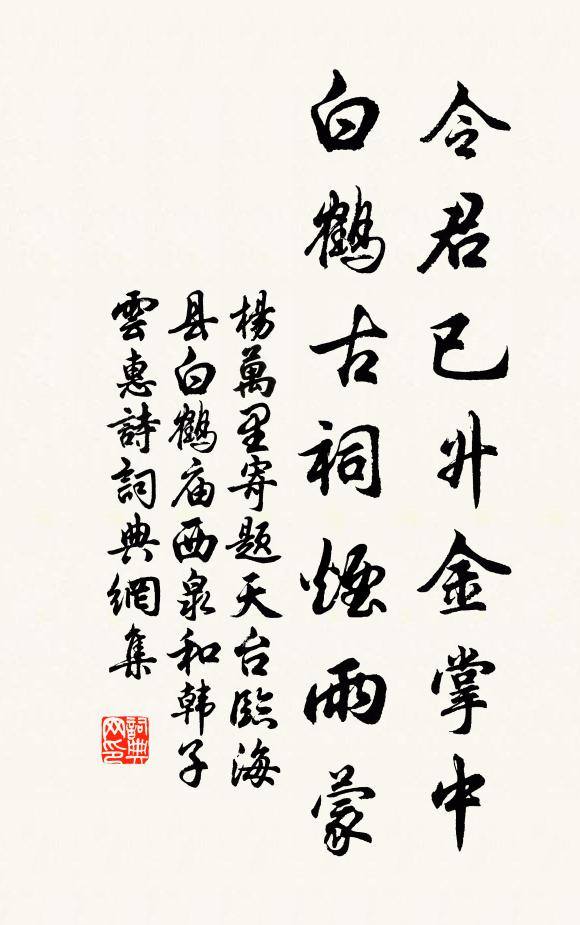 令君已升金掌中
白鶴古祠煙雨蒙
楊萬里寄題天台臨海
县白鶴庙西泉和韩子
雲惠詩詞典網集
詞典网印